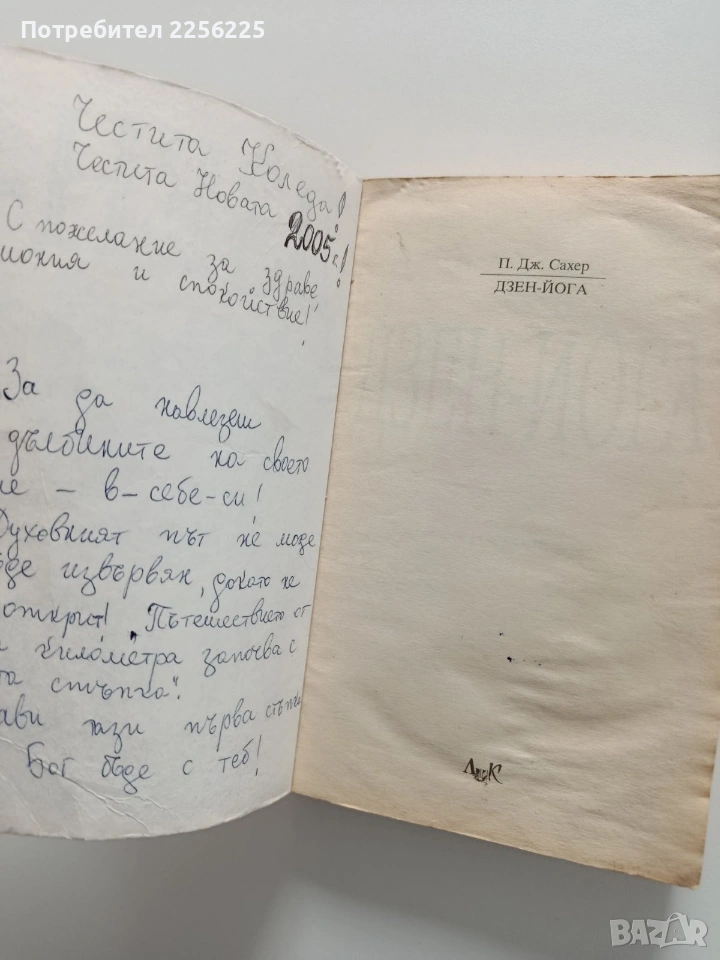 Потребител 2256225
Честита Коледа!
Честита Новата
2005г.!
С пожелание за здраве,
и спокойствие!
За да навлезеш
дълбините на своето
– в-себе-си!
Духовният път не може
извървян, докато не
открит! "Пътешествието от
километра започва с
стъпка".
тази първа стъпка
Бог бъде с теб!
П. Дж. Сахер
ДЗЕН-ЙОГА
ЛИК
BAZAR